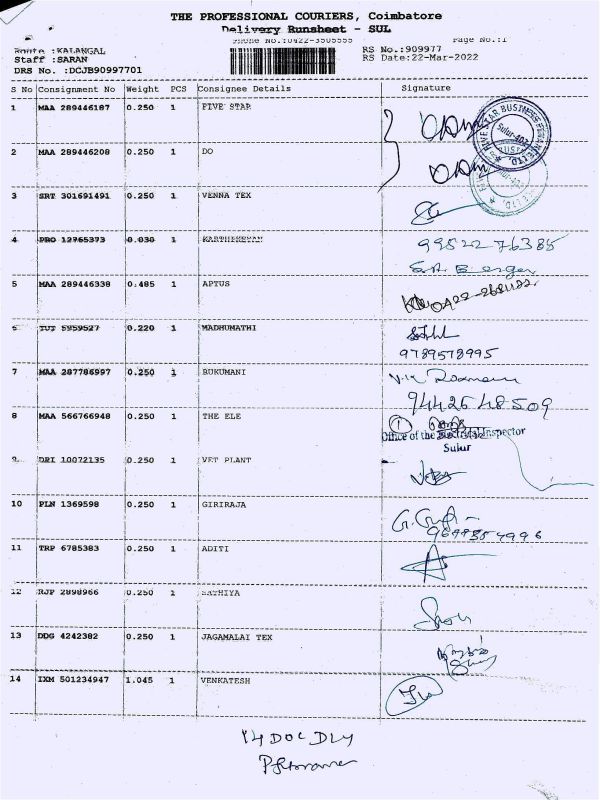 THE PROFESSIONAL COURIERS, Coimbatore
Delivery Runsheet - SUL
Phone No.:0422-3505555 Page No.:1
Route :KALANGAL RS No.:909977
Staff :SARAN RS Date:22-Mar-2022
DRS No. :DCJB90997701
S No Consignment No Weight PCS Consignee Details Signature
1 MAA 289446187 0.250 1 FIVE STAR
2 MAA 289446208 0.250 1 DO
3 SRT 301691491 0.250 1 VENNA TEX
4 PRO 12765373 0.030 1 KARTHIKEYAN 99522 76385
5 MAA 289446338 0.485 1 APTUS
6 TUT 5959527 0.220 1 MADHUMATHI
9789578995
7 MAA 287786997 0.250 1 RUKUMANI
94426 48509
8 MAA 566766948 0.250 1 THE ELE 1
Office of the Electrical Inspector
Sulur
9 DRI 10072135 0.250 1 VET PLANT
10 PLN 1369598 0.250 1 GIRIRAJA
11 TRP 6785383 0.250 1 ADITI
12 RJP 2898966 0.250 1 SATHIYA
13 DDG 4242382 0.250 1 JAGAMALAI TEX
14 IXM 501234947 1.045 1 VENKATESH
14 DOC DLY